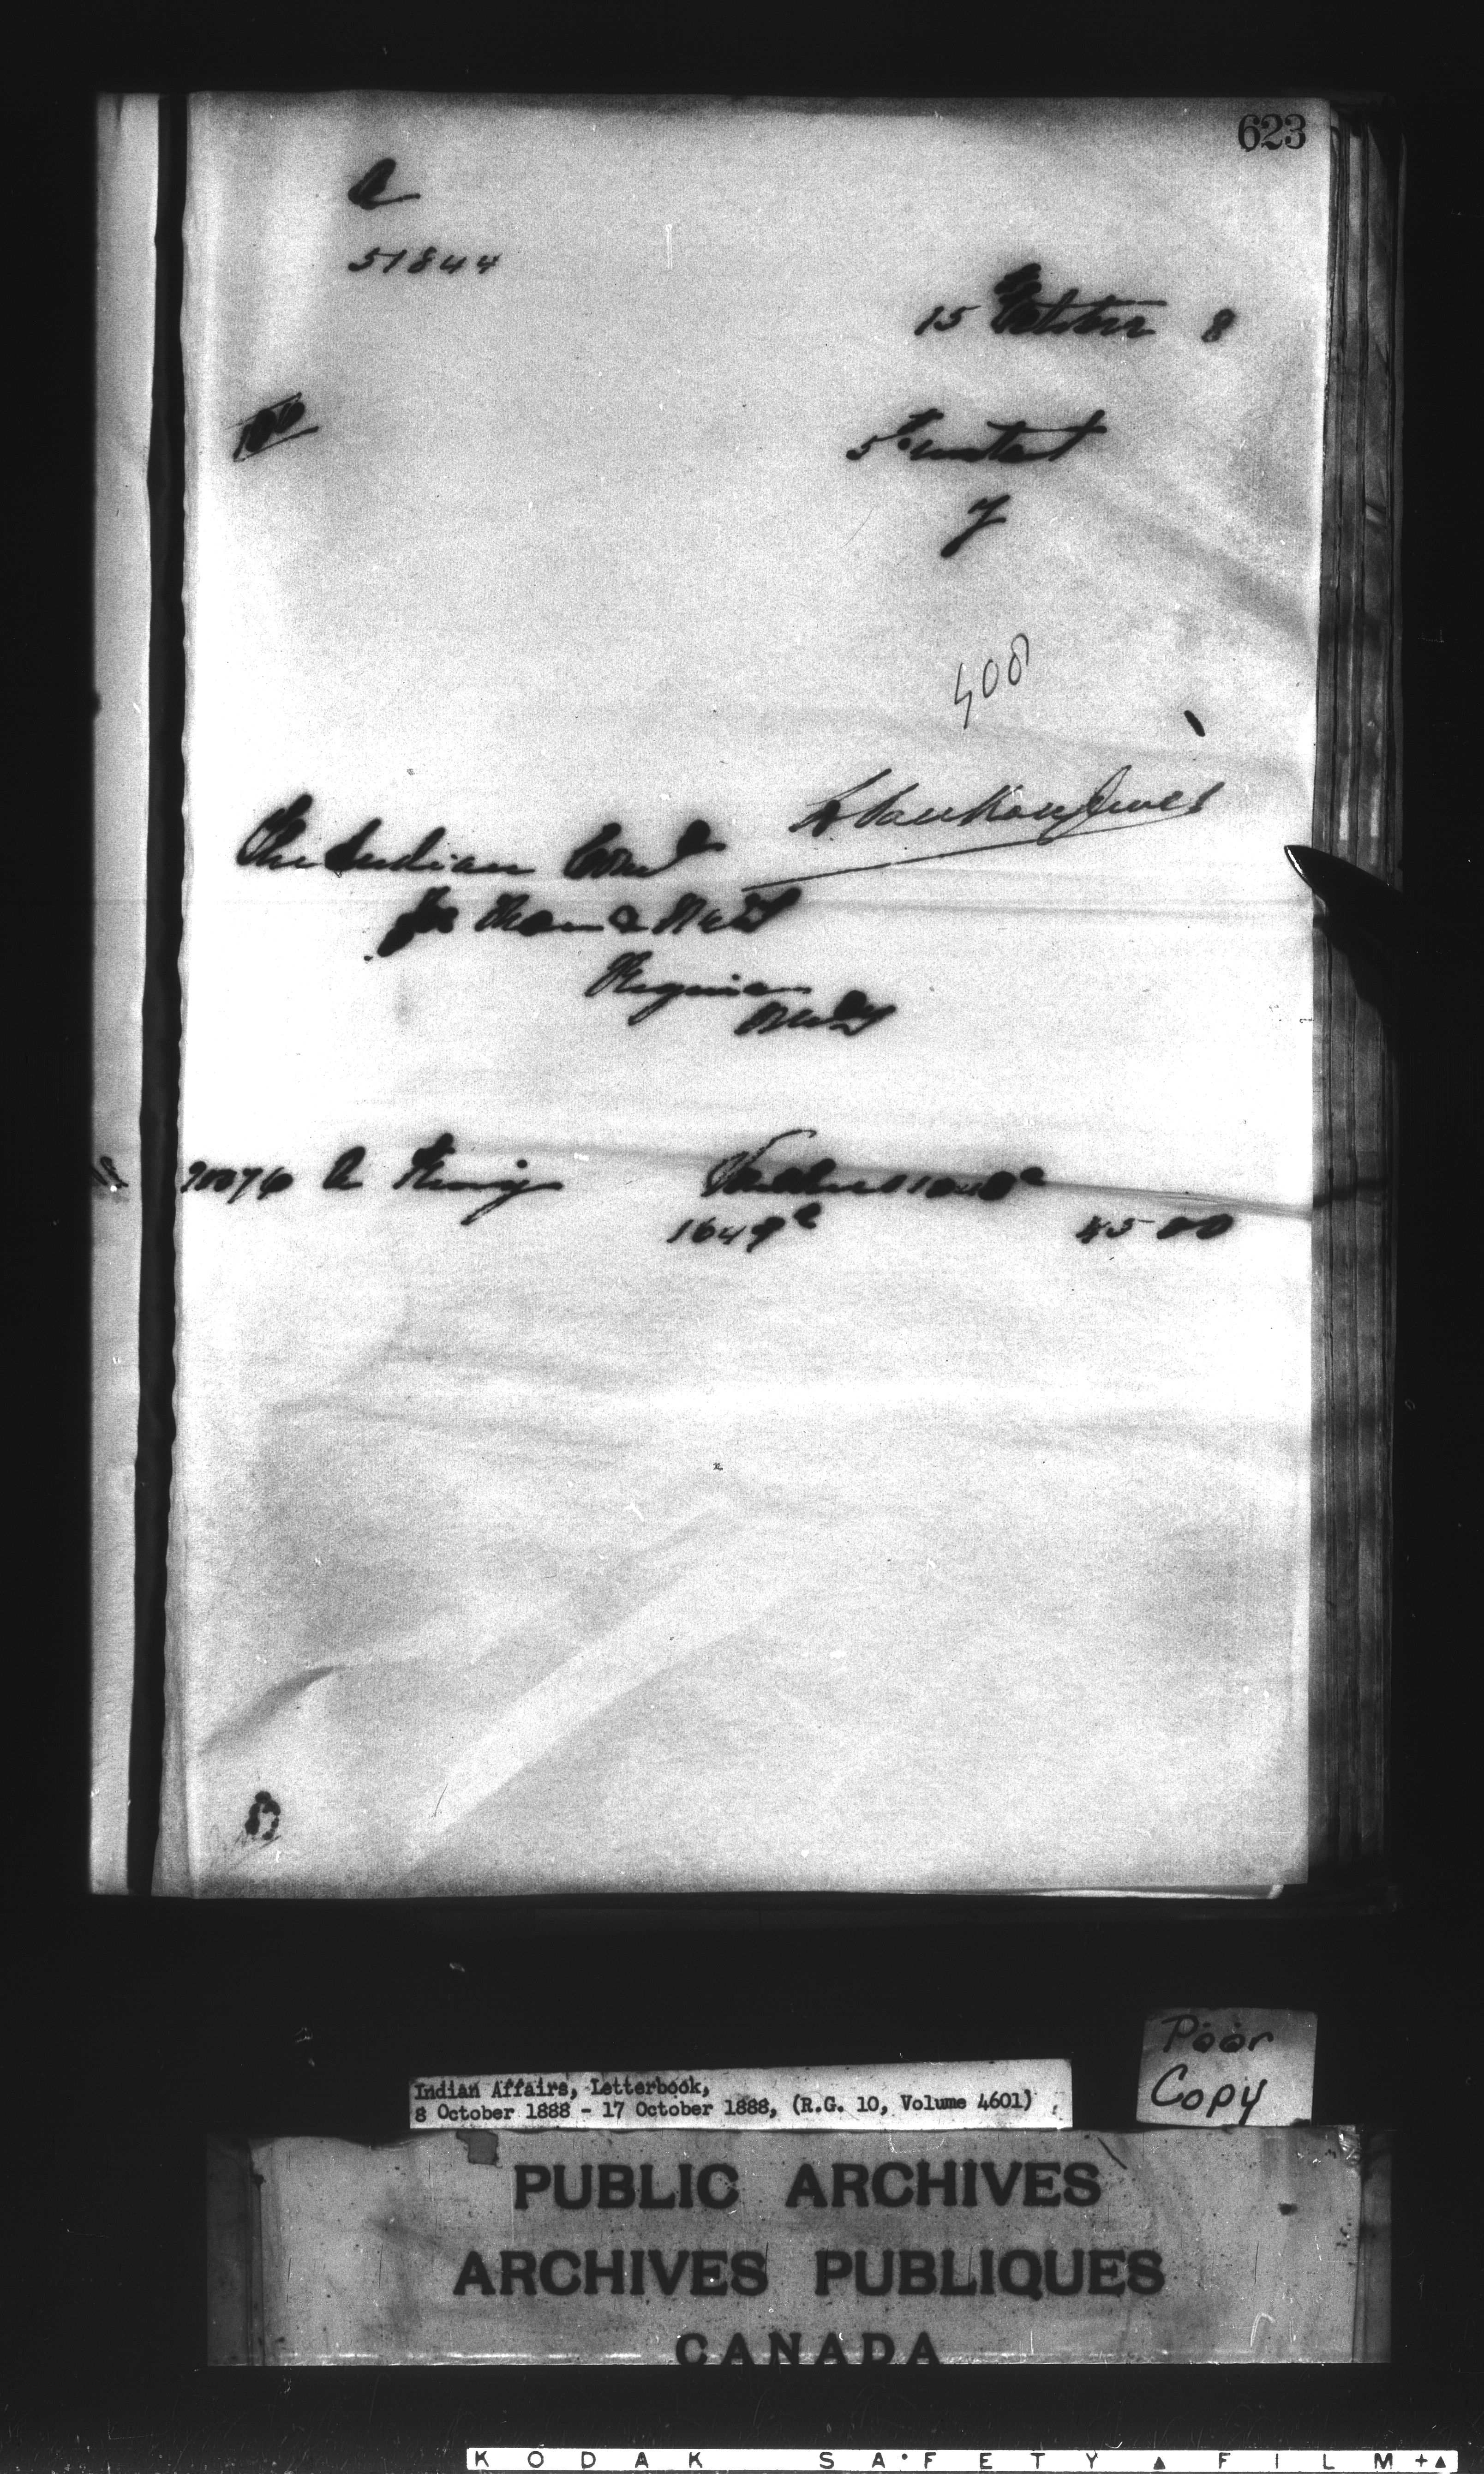 623
A
51844
15 October 8
5th instant
7
408
L Vankoughnet
The Indian Comr
for Man & NWT
Regina
NWT
A King
1649e
45 00
Indian Affairs, Letterbook,
8 October 1888 - 17 October 1888, (R.G. 10, Volume 4601)
Poor
Copy
PUBLIC ARCHIVES
ARCHIVES PUBLIQUES
CANADA
KODAK SA•FETY ▲ FILM +▲